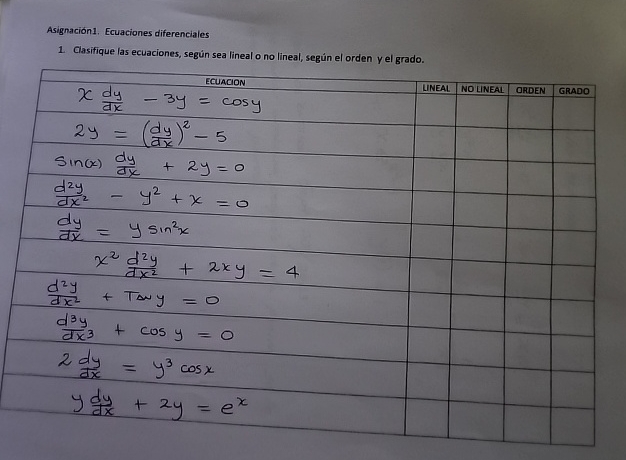 Asignación1. Ecuaciones diferenciales
1. Clasifique las ecuaciones, según sea lineal o no lineal, según el orden y el grado.
ECUACION LINEAL NO LINEAL ORDEN GRADO
x dy/dx - 3y = cosy
2y = (dy/dx)² - 5
Sin(x) dy/dx + 2y = 0
d²y/dx² - y² + x = 0
dy/dx = y sin²x
x² d²y/dx² + 2xy = 4
d²y/dx² + Tan y = 0
d³y/dx³ + cos y = 0
2 dy/dx = y³ cosx
y dy/dx + 2y = eˣ